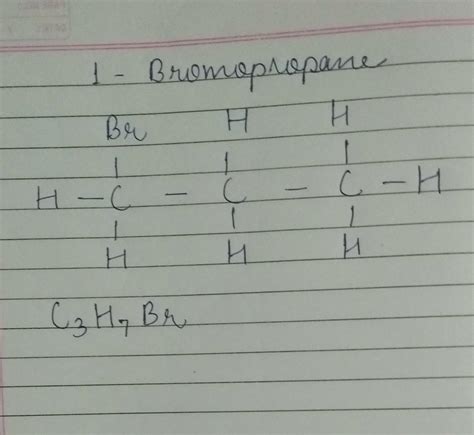 1 - Bromopropane
Br H H
H - C - C - C - H
H H H
C₃H₇Br